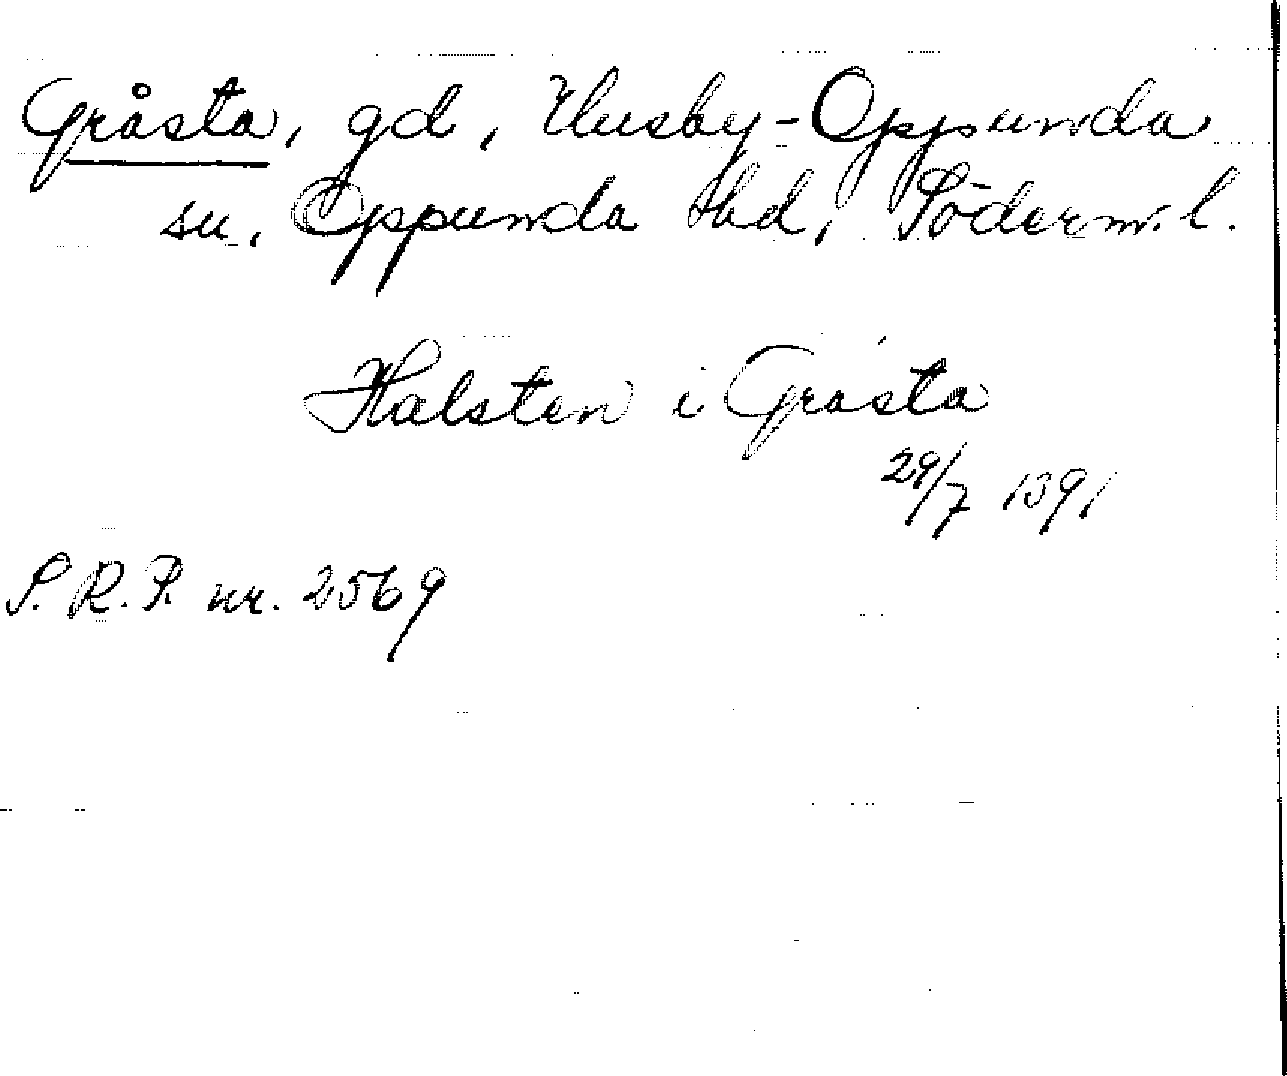 Gråsta, gd, Husby-Oppunda
sn, Oppunda hd, Söderm. l.
Halsten i Grasta
29/7 1391
S. R. P. nr. 2569